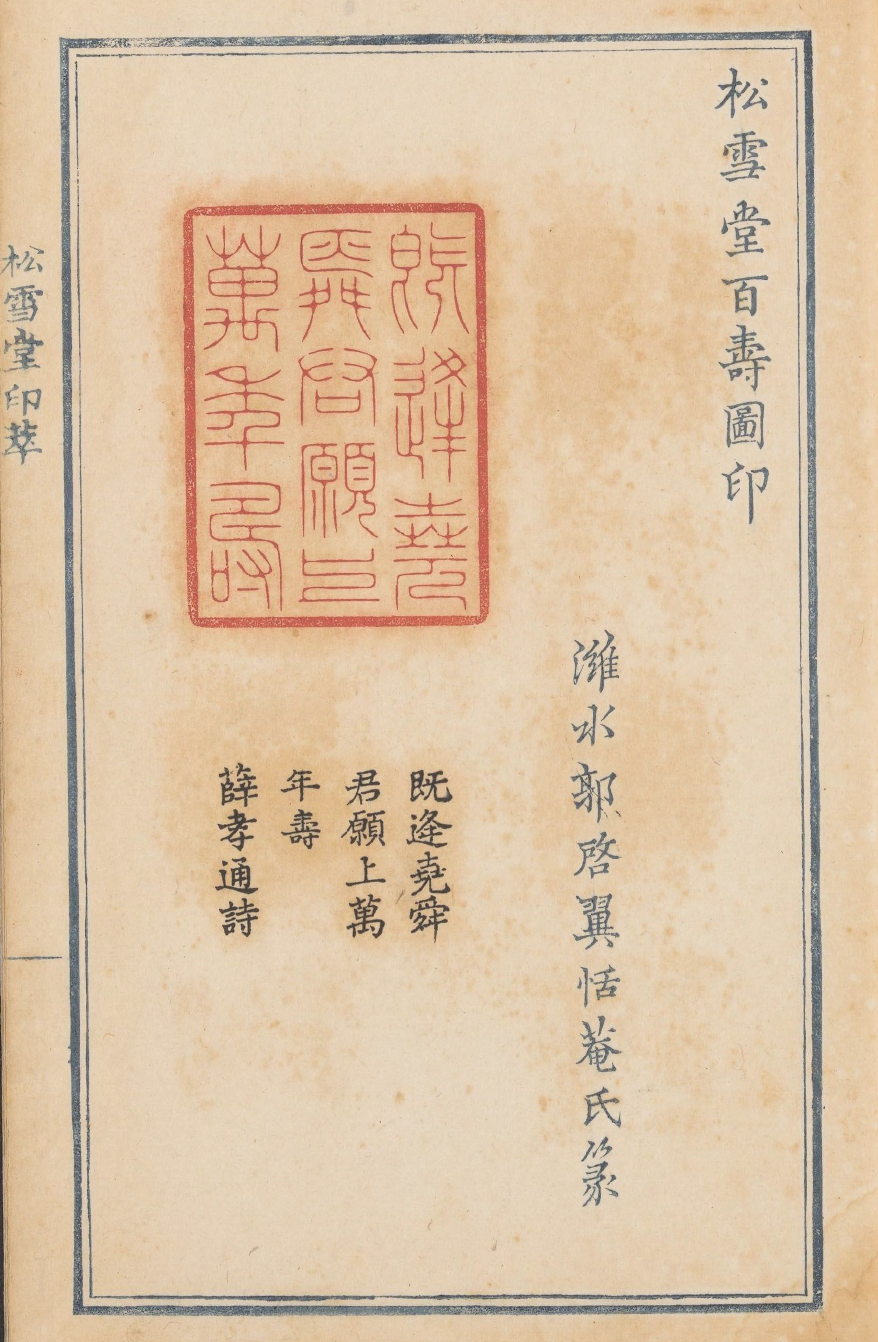 松雪堂百壽圖印
濰水郭啓翼恬菴氏篆
既逢堯
舜君願上
萬年壽
既逢堯舜
君願上萬
年壽
薛孝通詩
松雪堂印萃